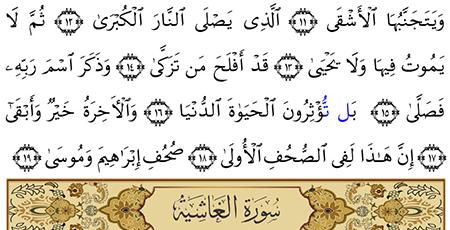 وَيَتَجَنَّبُهَا الْأَشْقَى ﴿١١﴾ الَّذِى يَصْلَى النَّارَ الْكُبْرَىٰ ﴿١٢﴾ ثُمَّ لَا
يَمُوتُ فِيهَا وَلَا يَحْيَىٰ ﴿١٣﴾ قَدْ أَفْلَحَ مَن تَزَكَّىٰ ﴿١٤﴾ وَذَكَرَ اسْمَ رَبِّهِۦ
فَصَلَّىٰ ﴿١٥﴾ بَل تُّؤْثِرُونَ الْحَيَوٰةَ الدُّنْيَا ﴿١٦﴾ وَالْأَخِرَةُ خَيْرٌ وَأَبْقَىٰٓ
﴿١٧﴾ إِنَّ هَـٰذَا لَفِى الصُّحُفِ الْأُولَىٰ ﴿١٨﴾ صُحُفِ إِبْرَاهِيمَ وَمُوسَىٰ ﴿١٩﴾
سُورَةُ الْغَاشِيَةِ